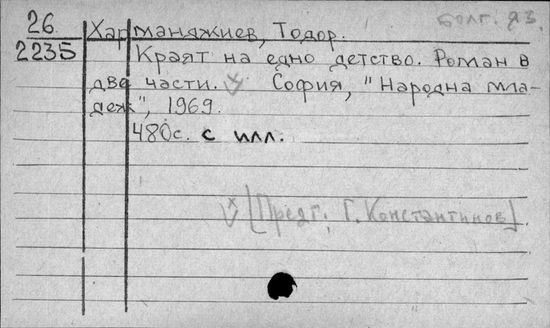 болг. яз.
26.
2235
Харманджиев, Тодор.
Краят на едно детство. Роман в
две части. София, "Народна мла-
деж", 1969.
480с. с илл.
[Предг. Г. Константинов].